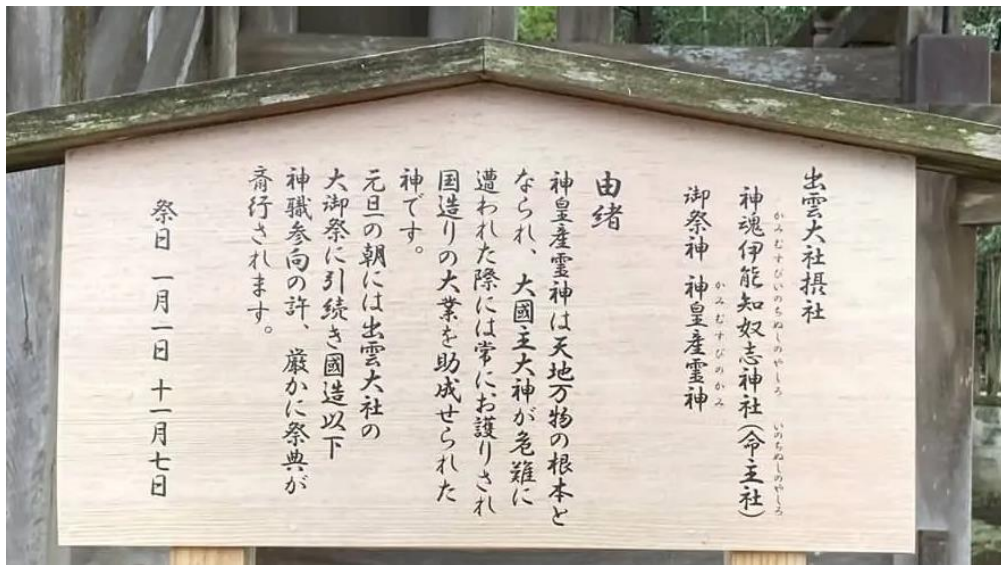 出雲大社摂社
神魂伊能知奴志神社(命主社)
かみむすびいのちぬしのやしろ いのちぬしのやしろ
御祭神 神皇産霊神
かみむすびのかみ
由緒
神皇産霊神は天地万物の根本と
なられ、大國主大神が危難に
遭われた際には常にお護りされ
国造りの大業を助成せられた
神です。
元旦の朝には出雲大社の
大御祭に引続き國造以下
神職参向の許、厳かに祭典が
斎行されます。
祭日 一月一日 十一月七日